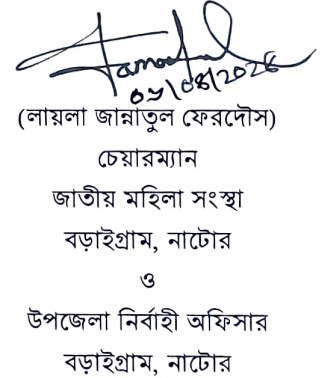 (লায়লা জান্নাতুল ফেরদৌস)
চেয়ারম্যান
জাতীয় মহিলা সংস্থা
বড়াইগ্রাম, নাটোর
ও
উপজেলা নির্বাহী অফিসার
বড়াইগ্রাম, নাটোর